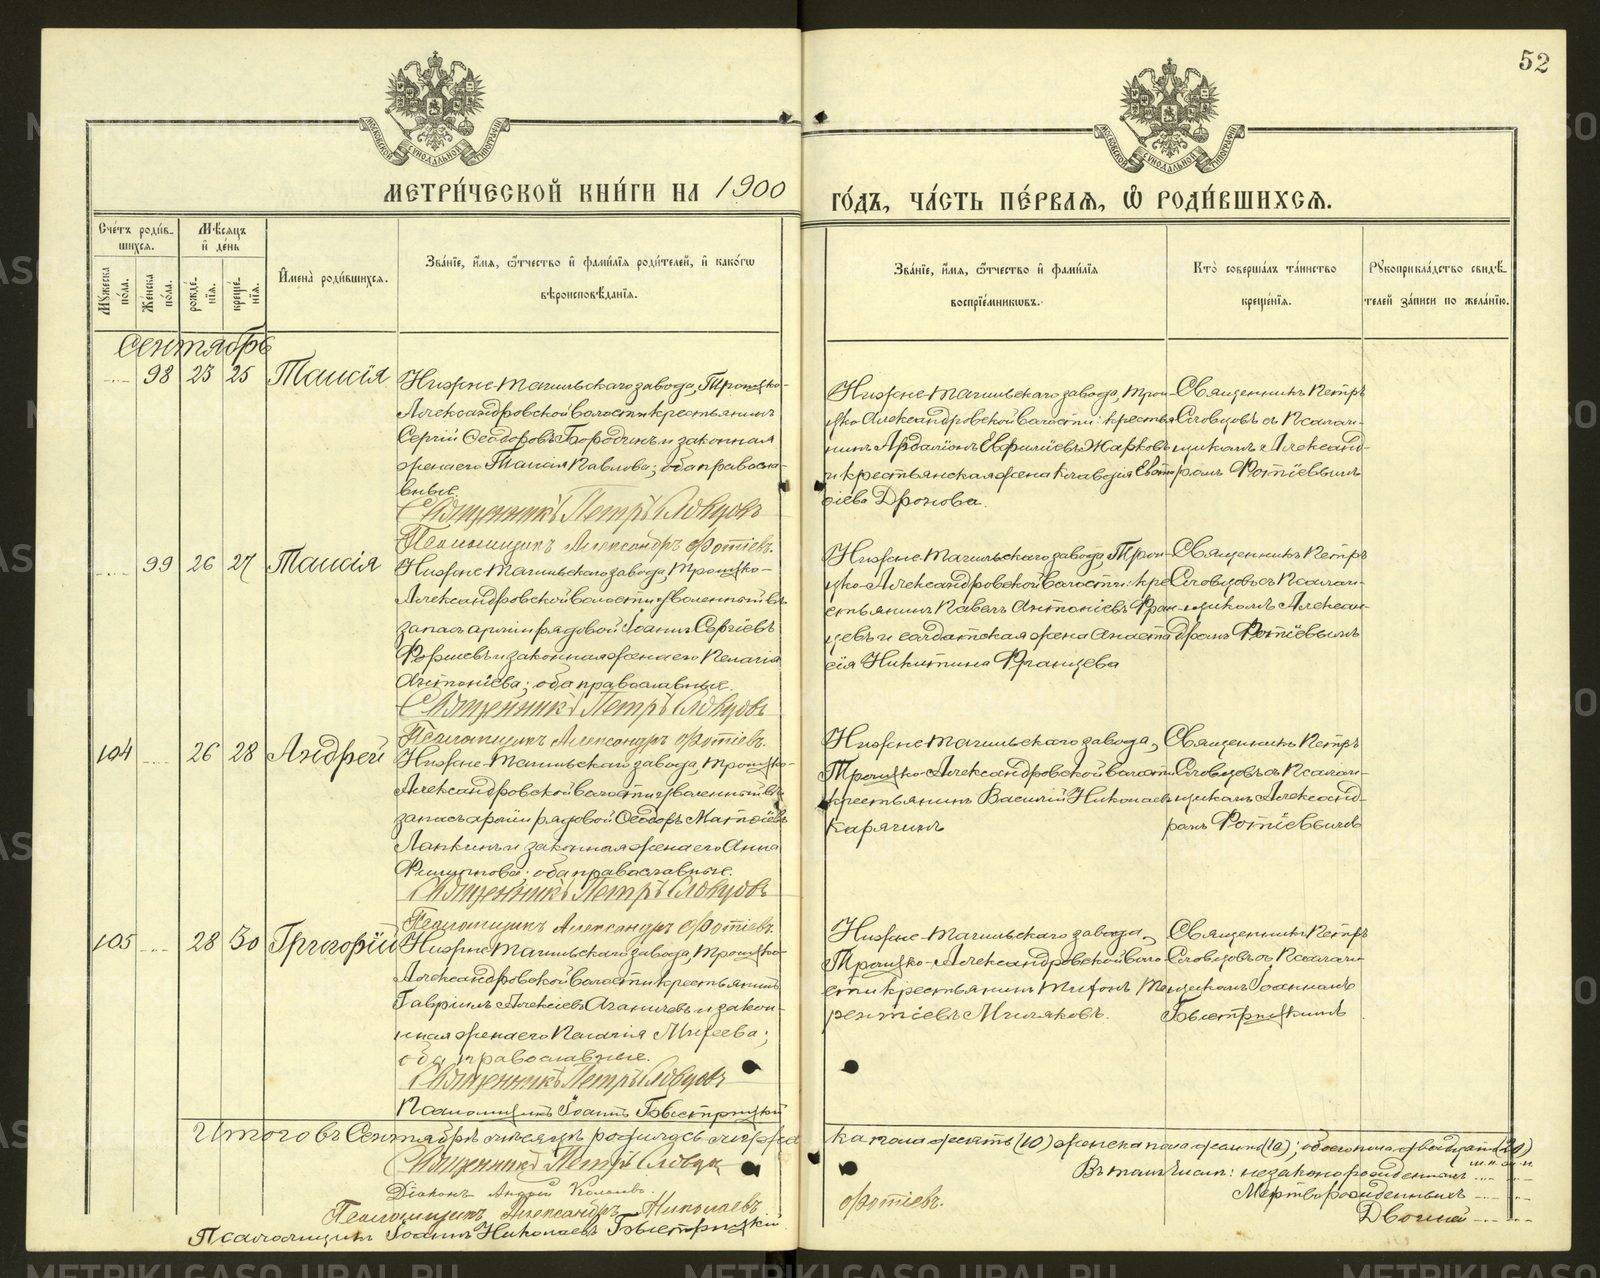 52
МОСКОВСКОЙ СѴНОДАЛЬНОЙ ТИПОГРАФІИ
МОСКОВСКОЙ СѴНОДАЛЬНОЙ ТИПОГРАФІИ
МЕТРИ́ЧЕСКОЙ КНИ́ГИ НА 1900
ГО́ДЪ, ЧА́СТЬ ПЕ́РВАѦ, Ѡ҆ РОДИ́ВШИХСѦ.
Сче́тъ роди́в-
шихсѧ.
Мѣ́сѧцъ
и҆ де́нь
Мꙋ́жеска
по́ла.
Же́нска
по́ла.
рожде́-
нїѧ.
креще́-
нїѧ.
И҆мена̀ роди́вшихсѧ.
Зва́нїе, и҆́мѧ, ѻ҆́тчество и҆ фами́лїѧ роди́телей, и҆ како́гѡ
вѣроисповѣ́данїѧ.
Зва́нїе, и҆́мѧ, ѻ҆́тчество и҆ фами́лїѧ
воспрїе́мникѡвъ.
Кто̀ соверша́лъ та́инство
креще́нїѧ.
Рꙋкоприкла́дство свидѣ́-
телей за́писи по жела́нїю.
Сентябрь
98 23 25 Таисія
Нижне-Тагильскаго завода, Троицко-
Александровской волости крестьянинъ
Сергій Ѳеодоровъ Бородинъ и законная
жена его Таисія Павлова; оба правосла-
вные.
Священникъ Петръ Словцовъ
Псаломщикъ Александръ Фотіевъ.
Нижне-Тагильскаго завода, Трои-
цко-Александровской волости: крестья-
нинъ Ардаліонъ Евфиміевъ Жарковъ
и крестьянская жена Клавдія Евти-
фіева Дронова.
Священникъ Петръ
Словцовъ съ Псалом-
щикомъ Александ-
ромъ Фотіевымъ
99 26 27 Таисія
Нижне-Тагильскаго завода, Троицко-
Александровской волости уволенный въ
запасъ арміи рядовой Іоаннъ Сергіевъ
и законная жена его Пелагія
Антоніева; оба православные.
Священникъ Петръ Словцовъ
Псаломщикъ Александръ Фотіевъ.
Нижне-Тагильскаго завода, Трои-
цко-Александровской волости: кре-
стьянинъ Павелъ Антоніевъ Фран-
цевъ и солдатская жена Анаста-
сія Никитина Францева
Священникъ Петръ
Словцовъ съ Псалом-
щикомъ Алексан-
дромъ Фотіевымъ
104 26 28 Андрей
Нижне-Тагильскаго завода, Троицко-
Александровской волости уволенный въ
запасъ арміи рядовой Ѳеодоръ Матѳіевъ
Лапкинъ и законная жена его Анна
Филиппова; оба православные.
Священникъ Петръ Словцовъ
Псаломщикъ Александръ Фотіевъ.
Нижне-Тагильскаго завода,
Троицко-Александровской волости
крестьянинъ Василій Николаевъ
Карягинъ
Священникъ Петръ
Словцовъ съ Псалом-
щикомъ Александ-
ромъ Фотіевымъ
105 28 30 Григорій
Нижне-Тагильскаго завода, Троицко-
Александровской волости крестьянинъ
Гавріилъ Алексіевъ и закон-
ная жена его Пелагія Михеева;
оба православные.
Священникъ Петръ Словцовъ
Псаломщикъ Іоаннъ Быстрицкій
Нижне-Тагильскаго завода,
Троицко-Александровской воло-
сти крестьянинъ Тифонъ Те-
рентіевъ Миляковъ.
Священникъ Петръ
Словцовъ съ Псалом-
щикомъ Іоанномъ
Быстрицкимъ
Итого въ Сентябрѣ мѣсяцѣ родилось мужеска
пола десять (10) женска пола десять (10); обоего пола двадцать (20)
Въ томъ числѣ: незаконорожденныхъ
Мертворожденныхъ
Двойней
Священникъ Петръ Словцовъ
Діаконъ Андрей
Псаломщикъ Александръ Николаевъ
Фотіевъ.
Псаломщикъ Іоаннъ Николаевъ Быстрицкій
METRIKI.GASO-URAL.RU